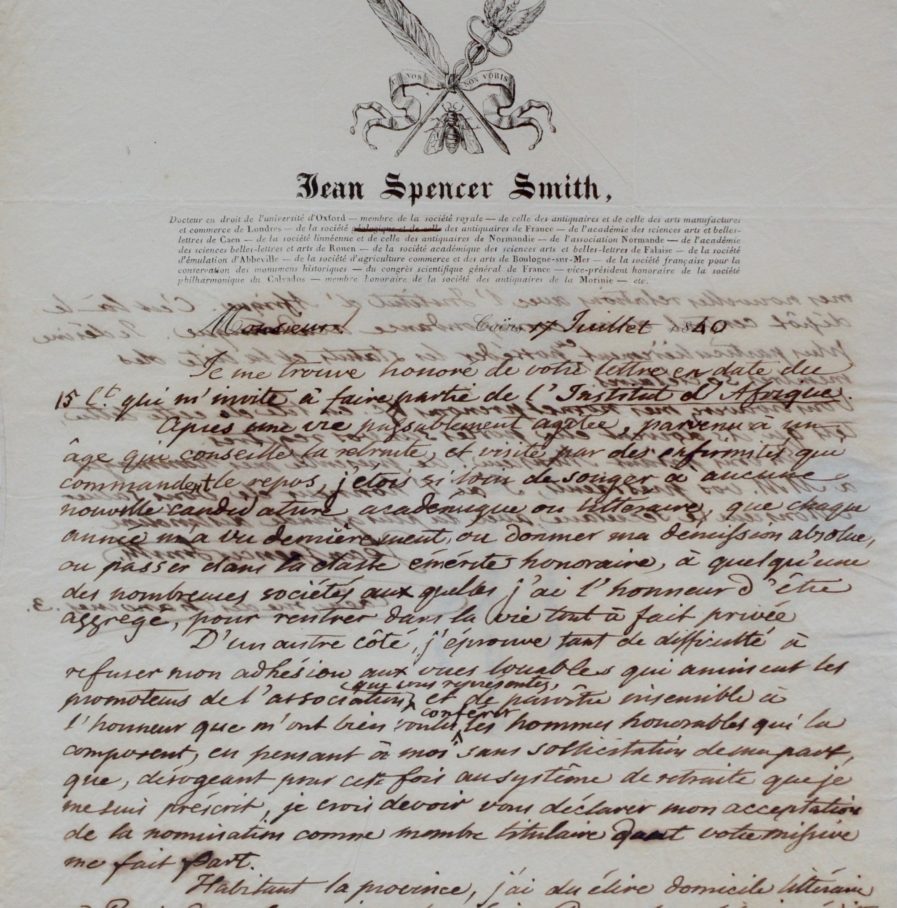 VOS NON VOBIS
Jean Spencer Smith,
Docteur en droit de l'université d'Oxford — membre de la société royale — de celle des antiquaires et de celle des arts manufactures
et commerce de Londres — de la société des antiquaires de France — de l'académie des sciences arts et belles-
lettres de Caen — de la société linnéenne et de celle des antiquaires de Normandie — de l'association Normande — de l'académie
des sciences belles-lettres et arts de Rouen — de la société académique des sciences arts et belles-lettres de Falaise — de la société
d'émulation d'Abbeville — de la société d'agriculture commerce et des arts de Boulogne-sur-Mer — de la société française pour la
conservation des monumens historiques — du congrès scientifique général de France — vice-président honoraire de la société
philharmonique du Calvados — membre honoraire de la société des antiquaires de la Morinie — etc.
Monsieur 17 Juillet 1840
Je me trouve honoré de votre lettre en date du
15 Ct. qui m'invite à faire partie de l'Institut d'Afrique.
Après une vie passablement agitée, parvenu à un
âge qui conseille la retraite, et visité par des infirmités que
commandent le repos, j'étois si loin de songer à aucune
nouvelle candidature académique ou littéraire, que chaque
année m'a vu dernièrement, ou donner ma démission absolue,
ou passer dans la classe émérite honoraire, à quelqu'une
des nombreuses sociétés aux quelles j'ai l'honneur d'être
aggrégé, pour rentrer dans la vie tout à fait privée
D'un autre côté, j'éprouve tant de difficulté à
refuser mon adhésion aux vues louables qui animent les
promoteurs de l'association que vous représentez, et de paroître insensible à
l'honneur que m'ont bien voulu conférer les hommes honorables qui la
composent, en pensant à moi sans sollicitation de ma part,
que, dérogeant pour cette fois au système de retraite que je
me suis préscrit, je crois devoir vous déclarer mon acceptation
de la nomination comme membre titulaire dont votre missive
me fait part.
Habitant la province, j'ai du élire domicile littéraire